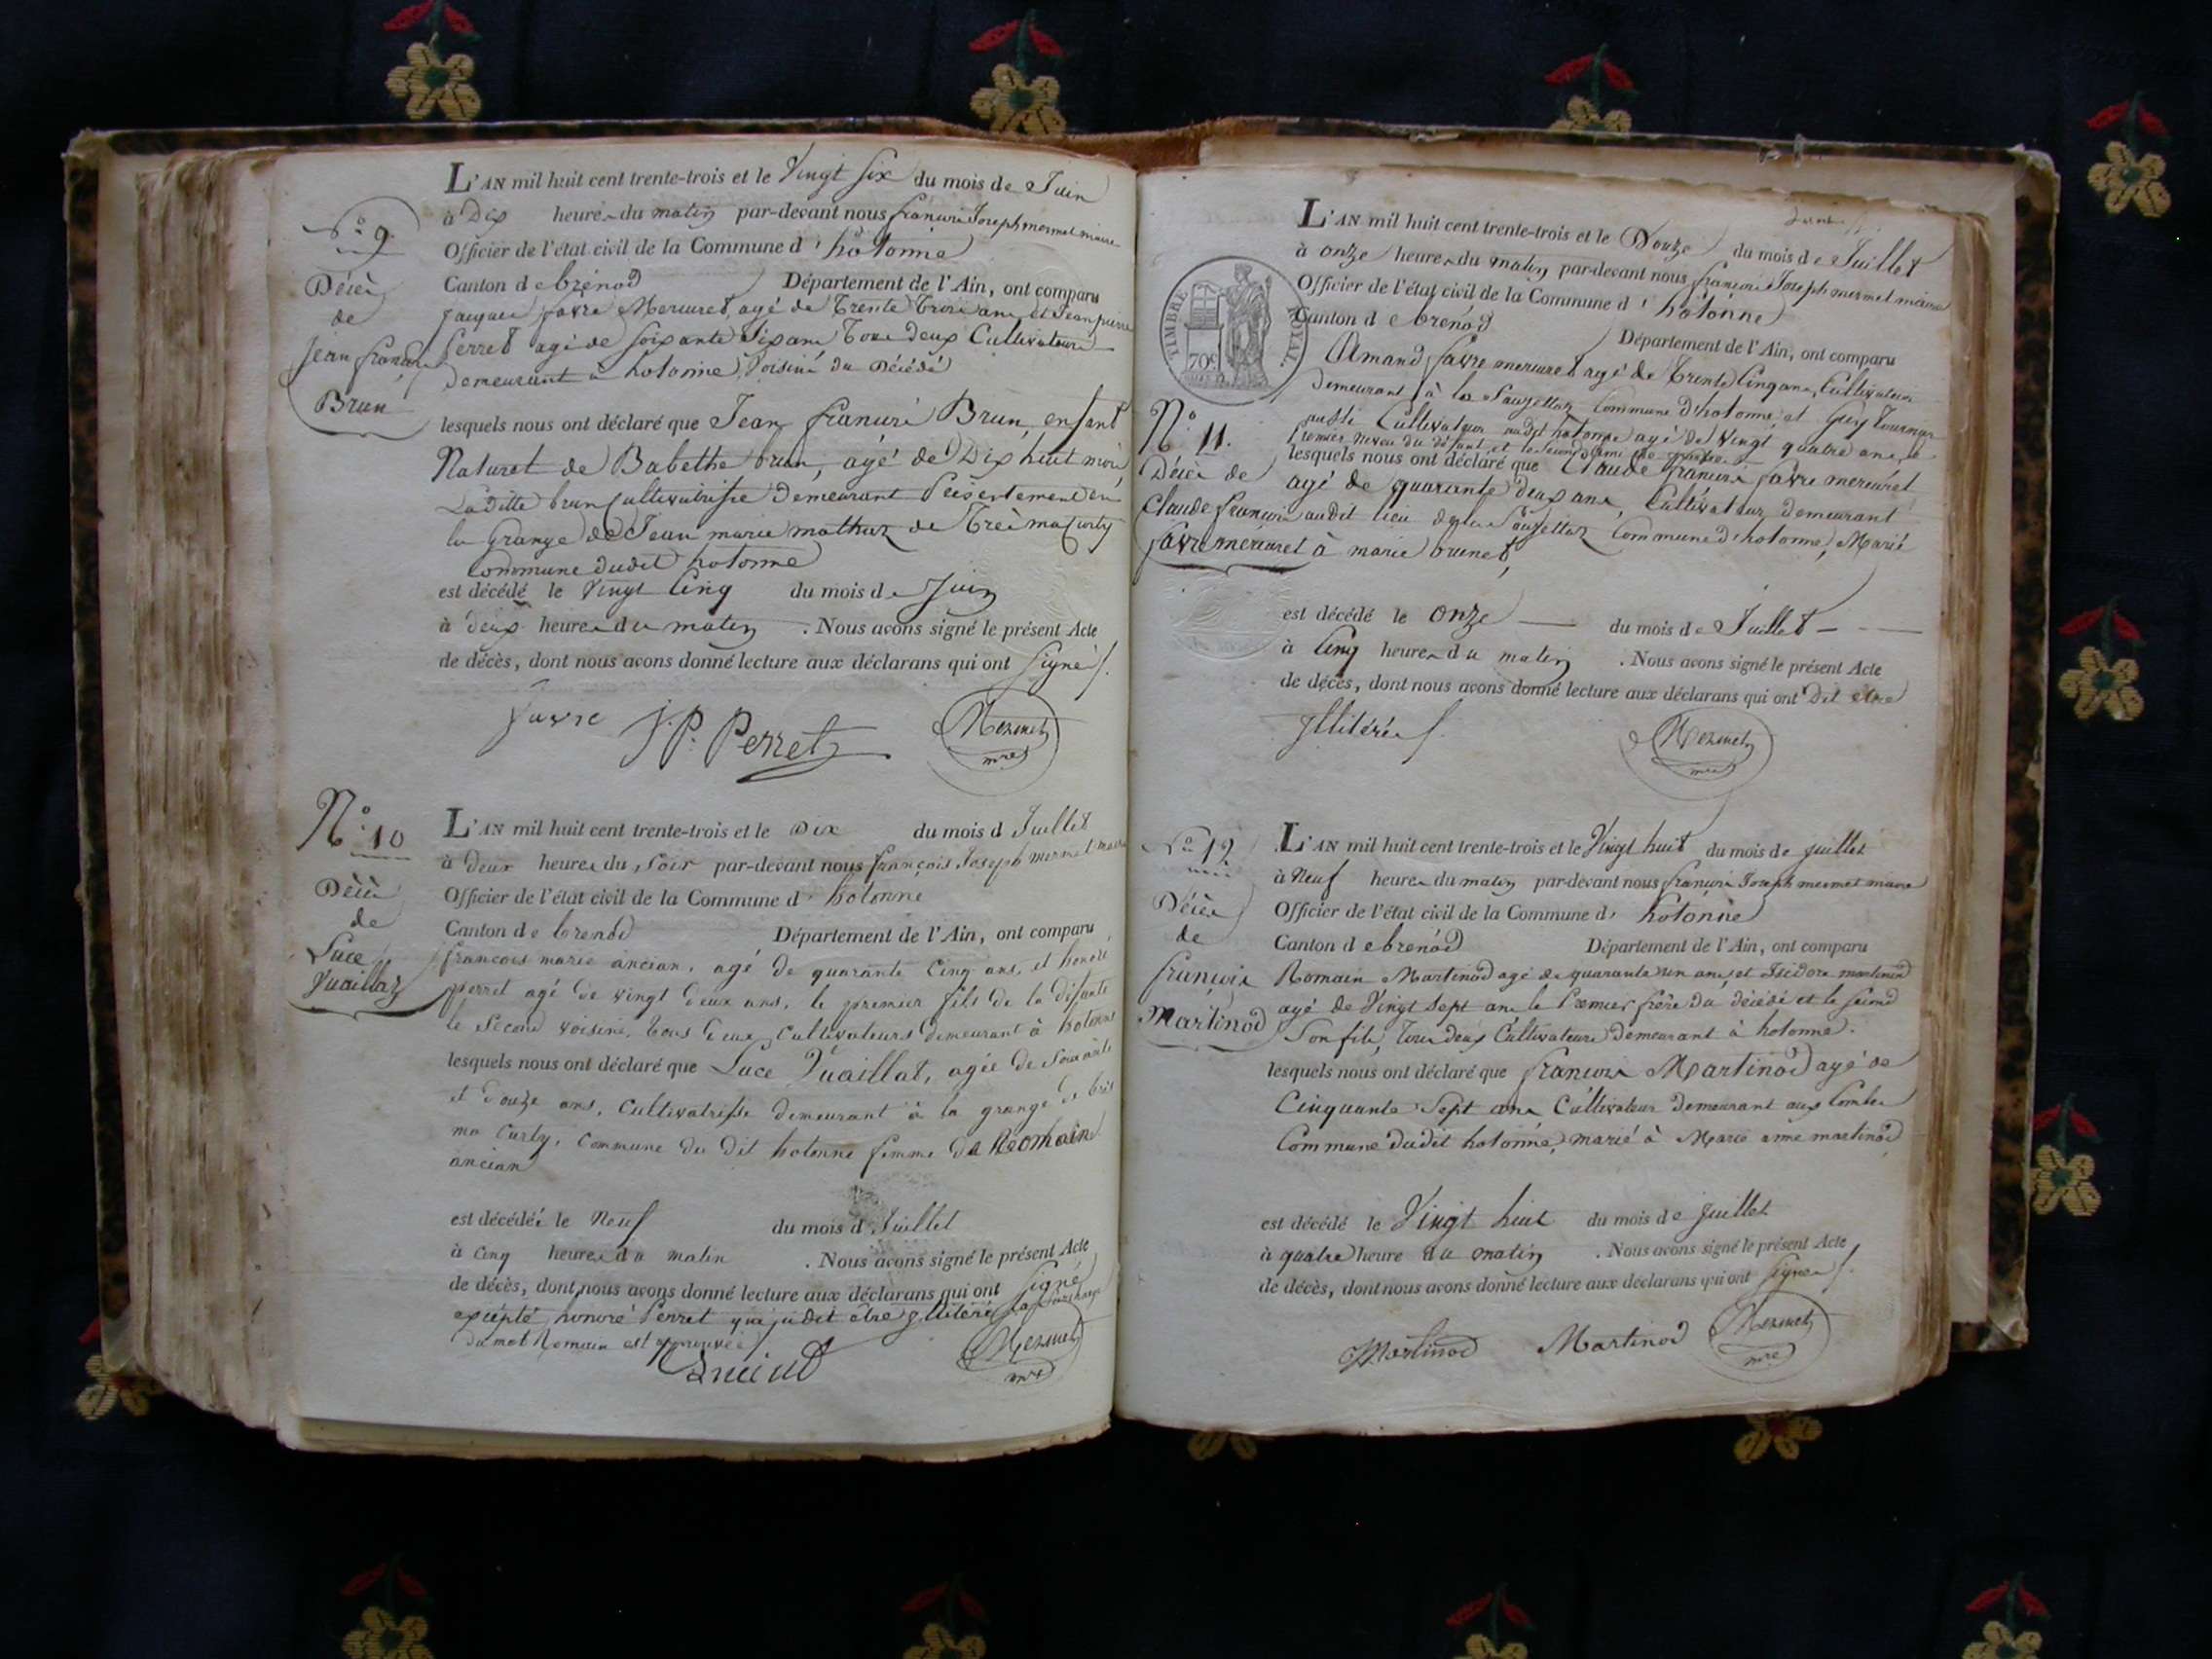 L'AN mil huit cent trente-trois et le Vingt six du mois de Juin
à Dix heures du matin par-devant nous francois Joseph mermet maire
N.o 9.
Officier de l'état civil de la Commune d'hotonne
Canton de brénod Département de l'Ain, ont comparu
Décès
de
Jean francois
Brun
Jacques favre Mercuret, agé de trente trois ans et Jean pierre
Perret agé de soixante dix ans tous deux Cultivateurs
demeurant à hotonne, Voisins du Décédé
lesquels nous ont déclaré que Jean francois Brun, enfant
Naturel de Babethe brun, agé de Dix huit mois
Laditte brun Cultivatrisse Demeurant
la Grange de Jean marie de Très ma Curty
Commune dudit hotonne
est décédé le Vingt Cinq du mois de Juin
à deux heures du matin . Nous avons signé le présent Acte
de décès, dont nous avons donné lecture aux déclarans qui ont signés
favre J.P. Perret Mermet
mre
N.o 10
L'AN mil huit cent trente-trois et le Dix du mois d Juillet
à deux heures du Soir par-devant nous françois Joseph mermet maire
Officier de l'état civil de la Commune d'hotonne
Canton de brenod Département de l'Ain, ont comparu
Décès
de
Luce
Vuaillat
francois marie ancian, agé de quarante Cinq ans, et honoré
perret agé de vingt deux ans, le premier fils de la défunte
le Second voisin, tous deux Cultivateurs demeurant à hotonne
lesquels nous ont déclaré que Luce Vuaillat, agée de Soixante
et douze ans, Cultivatrisse demeurant à la grange de très
ma Curty, Commune du dit hotonne femme de Romain
ancian
est décédée le Neuf du mois d Juillet
à cinq heures du matin . Nous avons signé le présent Acte
de décès, dont nous avons donné lecture aux déclarans qui ont signé
excepté honoré Perret qui a dit être illitéré la surcharge
du mot Romain est approuvée
Mermet
mre
L'AN mil huit cent trente-trois et le Douze du mois de Juillet
à onze heures du matin par-devant nous francois Joseph mermet maire
Officier de l'état civil de la Commune d'hotonne
Canton de brenod Département de l'Ain, ont comparu
TIMBRE ROYAL.
70c.
Armand favre mercuret agé de Trente Cinq ans, Cultivateur
demeurant à la Commune d'hotonne, et Guy Tournier
aussi Cultivateur audit hotonne agé de Vingt quatre ans, le
premier Neveu du défunt, et le second
N.o 11.
Décès de
Claude francois
favre mercuret
lesquels nous ont déclaré que Claude francois favre mercuret
agé de quarante deux ans, Cultivateur demeurant
audit lieu de la Commune d'hotonne, Marié
à marie brunet,
est décédé le onze du mois de Juillet
à Cinq heures du matin . Nous avons signé le présent Acte
de décès, dont nous avons donné lecture aux déclarans qui ont Dit être
Illitérés
Mermet
mre
N.o 12
L'AN mil huit cent trente-trois et le Vingt huit du mois de juillet
à Neuf heures du matin par-devant nous francois Joseph mermet maire
Officier de l'état civil de la Commune d'hotonne
Canton de brenod Département de l'Ain, ont comparu
Décès
de
françois
Martinod
Romain Martinod agé de quarante un ans, et Isidore martinod
agé de Vingt Sept ans le Premier frère du décédé et le second
Son fils, tous deux Cultivateurs Demeurant à hotonne.
lesquels nous ont déclaré que francois Martinod agé de
Cinquante Sept ans Cultivateur Demeurant aux Combes
Commune dudit hotonne, marié à Marie anne martinod
est décédé le Vingt huit du mois de juillet
à quatre heure du matin . Nous avons signé le présent Acte
de décès, dont nous avons donné lecture aux déclarans qui ont signés
Martinod Martinod Mermet
mre